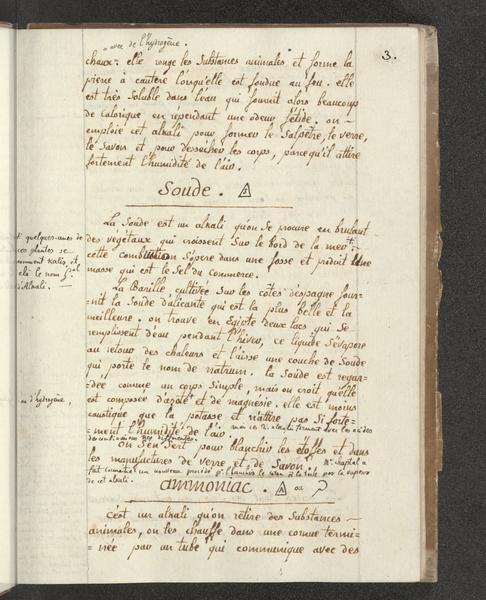 avec de l'hydrogène.
3.
chaux: elle ronge les Substances animales et forme la
pierre à cautère lorsqu'elle est fondue au feu. elle
est très Soluble dans l'eau qui fournit alors beaucoup
de calorique en rependant une odeur fétide. on
emploie cet alkali pour former le Salpêtre, le verre,
le Savon et pour dessécher les corps, parcequ'il attire
fortement l'humidité de l'air.
Soude.
La Soude est un alkali qu'on se procure en brulant
des végétaux qui croissent Sur le bord de la mer †.
cette combustion S'opere dans une fosse et produit Une
masse qui est le Sel du Commerce.
† quelques-unes de
ces plantes se
nomment Kalis, et
delà le nom
d'Alkali.
La Barille, cultivée Sur les côtes d'espagne four-
=nit la Soude d'alicante qui est la plus belle et la
meilleure. on trouve en Egipte deux lacs qui Se
remplissent d'eau pendant l'hiver, ce liquide S'évapore
au retour des chaleurs et l'aisse une couche de Soude
qui porte le nom de natrum. la Soude est regar-
=dée comme un corps Simple, mais on croit qu'elle
est composée d'azote et de magnésie. elle est moins
d'hydrogène,
caustique que la potasse et n'attire pas Si forte-
=ment l'humidité de l'air.
les acides
des combinaisons différentes.
on S'en Sert pour blanchir les étoffes et dans
les manufactures de verre et de Savon. Mr. chaptal a
fait connaitre un nouveau procédé pr. blanchir le coton à la vapeur
de cet alkali.
ammoniac. ou
C'est un alkali qu'on rétire des Substances
animales, on les chauffe dans une cornue termi-
=née par un tube qui communique avec des